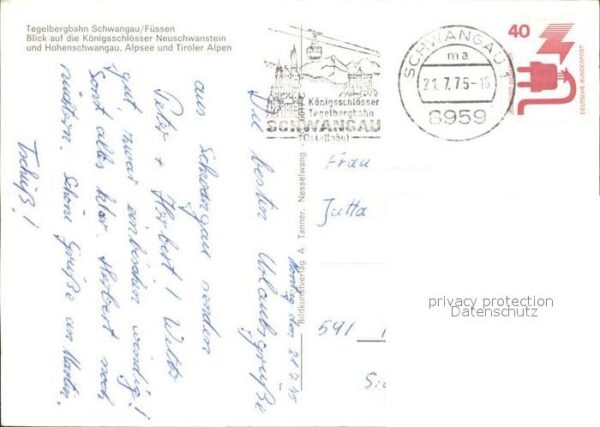 Tegelbergbahn Schwangau/Füssen
Blick auf die Königsschlösser Neuschwanstein
und Hohenschwangau, Alpsee und Tiroler Alpen
Königsschlösser
Tegelbergbahn
SCHWANGAU
(Ostallgäu)
SCHWANGAU 1
ma
21.7.75-16
8959
40
DEUTSCHE BUNDESPOST
Bildkunstverlag A. Tanner, Nesselwang
Montag den 21.7.75
Die besten Urlaubsgrüße
aus Schwangau senden
Peter + Herbert! Wetter
gut, zwar ein bischen windig!
Sonst alles klar. Herbert noch
nüchtern. Schöne Grüße an Martin.
Tschüß!
Frau
Jutta
591
privacy protection
Datenschutz